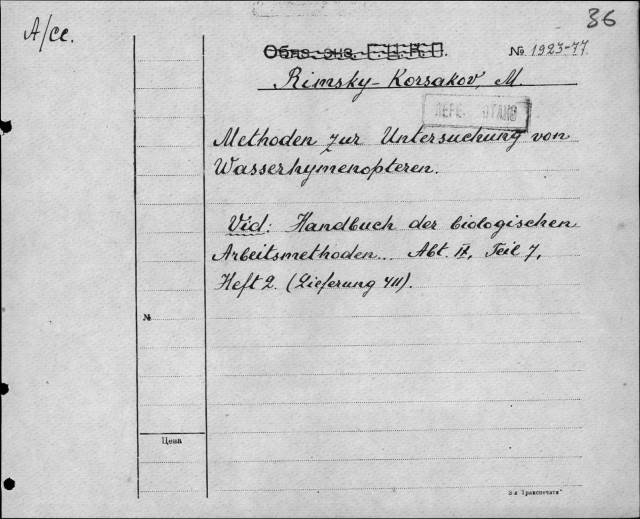 36
А/сс.
Обяз. экз. Г.Ц.К.П.
№ 1923-77
Rimsky-Korsakov, M.
Methoden zur Untersuchung von
Wasserhymenopteren.
Vid: Handbuch der biologischen
Arbeitsmethoden... Abt. IX, Teil 7,
Heft 2. (Lieferung 411).
№
Цена
3-я Транспечати